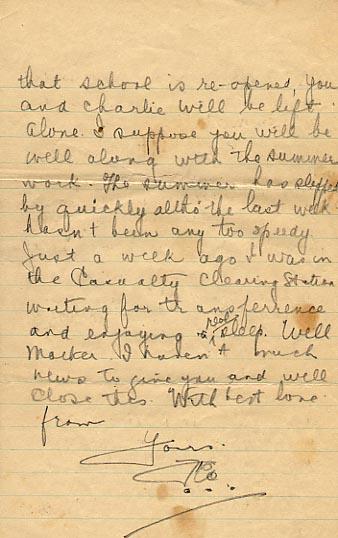 that school is re-opened, you
and Charlie will be left
alone. I suppose you will be
well along with the summer
work. The summer has slipped
by quickly altho' the last week
hasn't been any too speedy
Just a week ago I was in
the Casualty Clearing Station
waiting for transferrence
and enjoying a real sleep. Well
I haven't much
news to give you and will
close this. With best love
from
Yours.